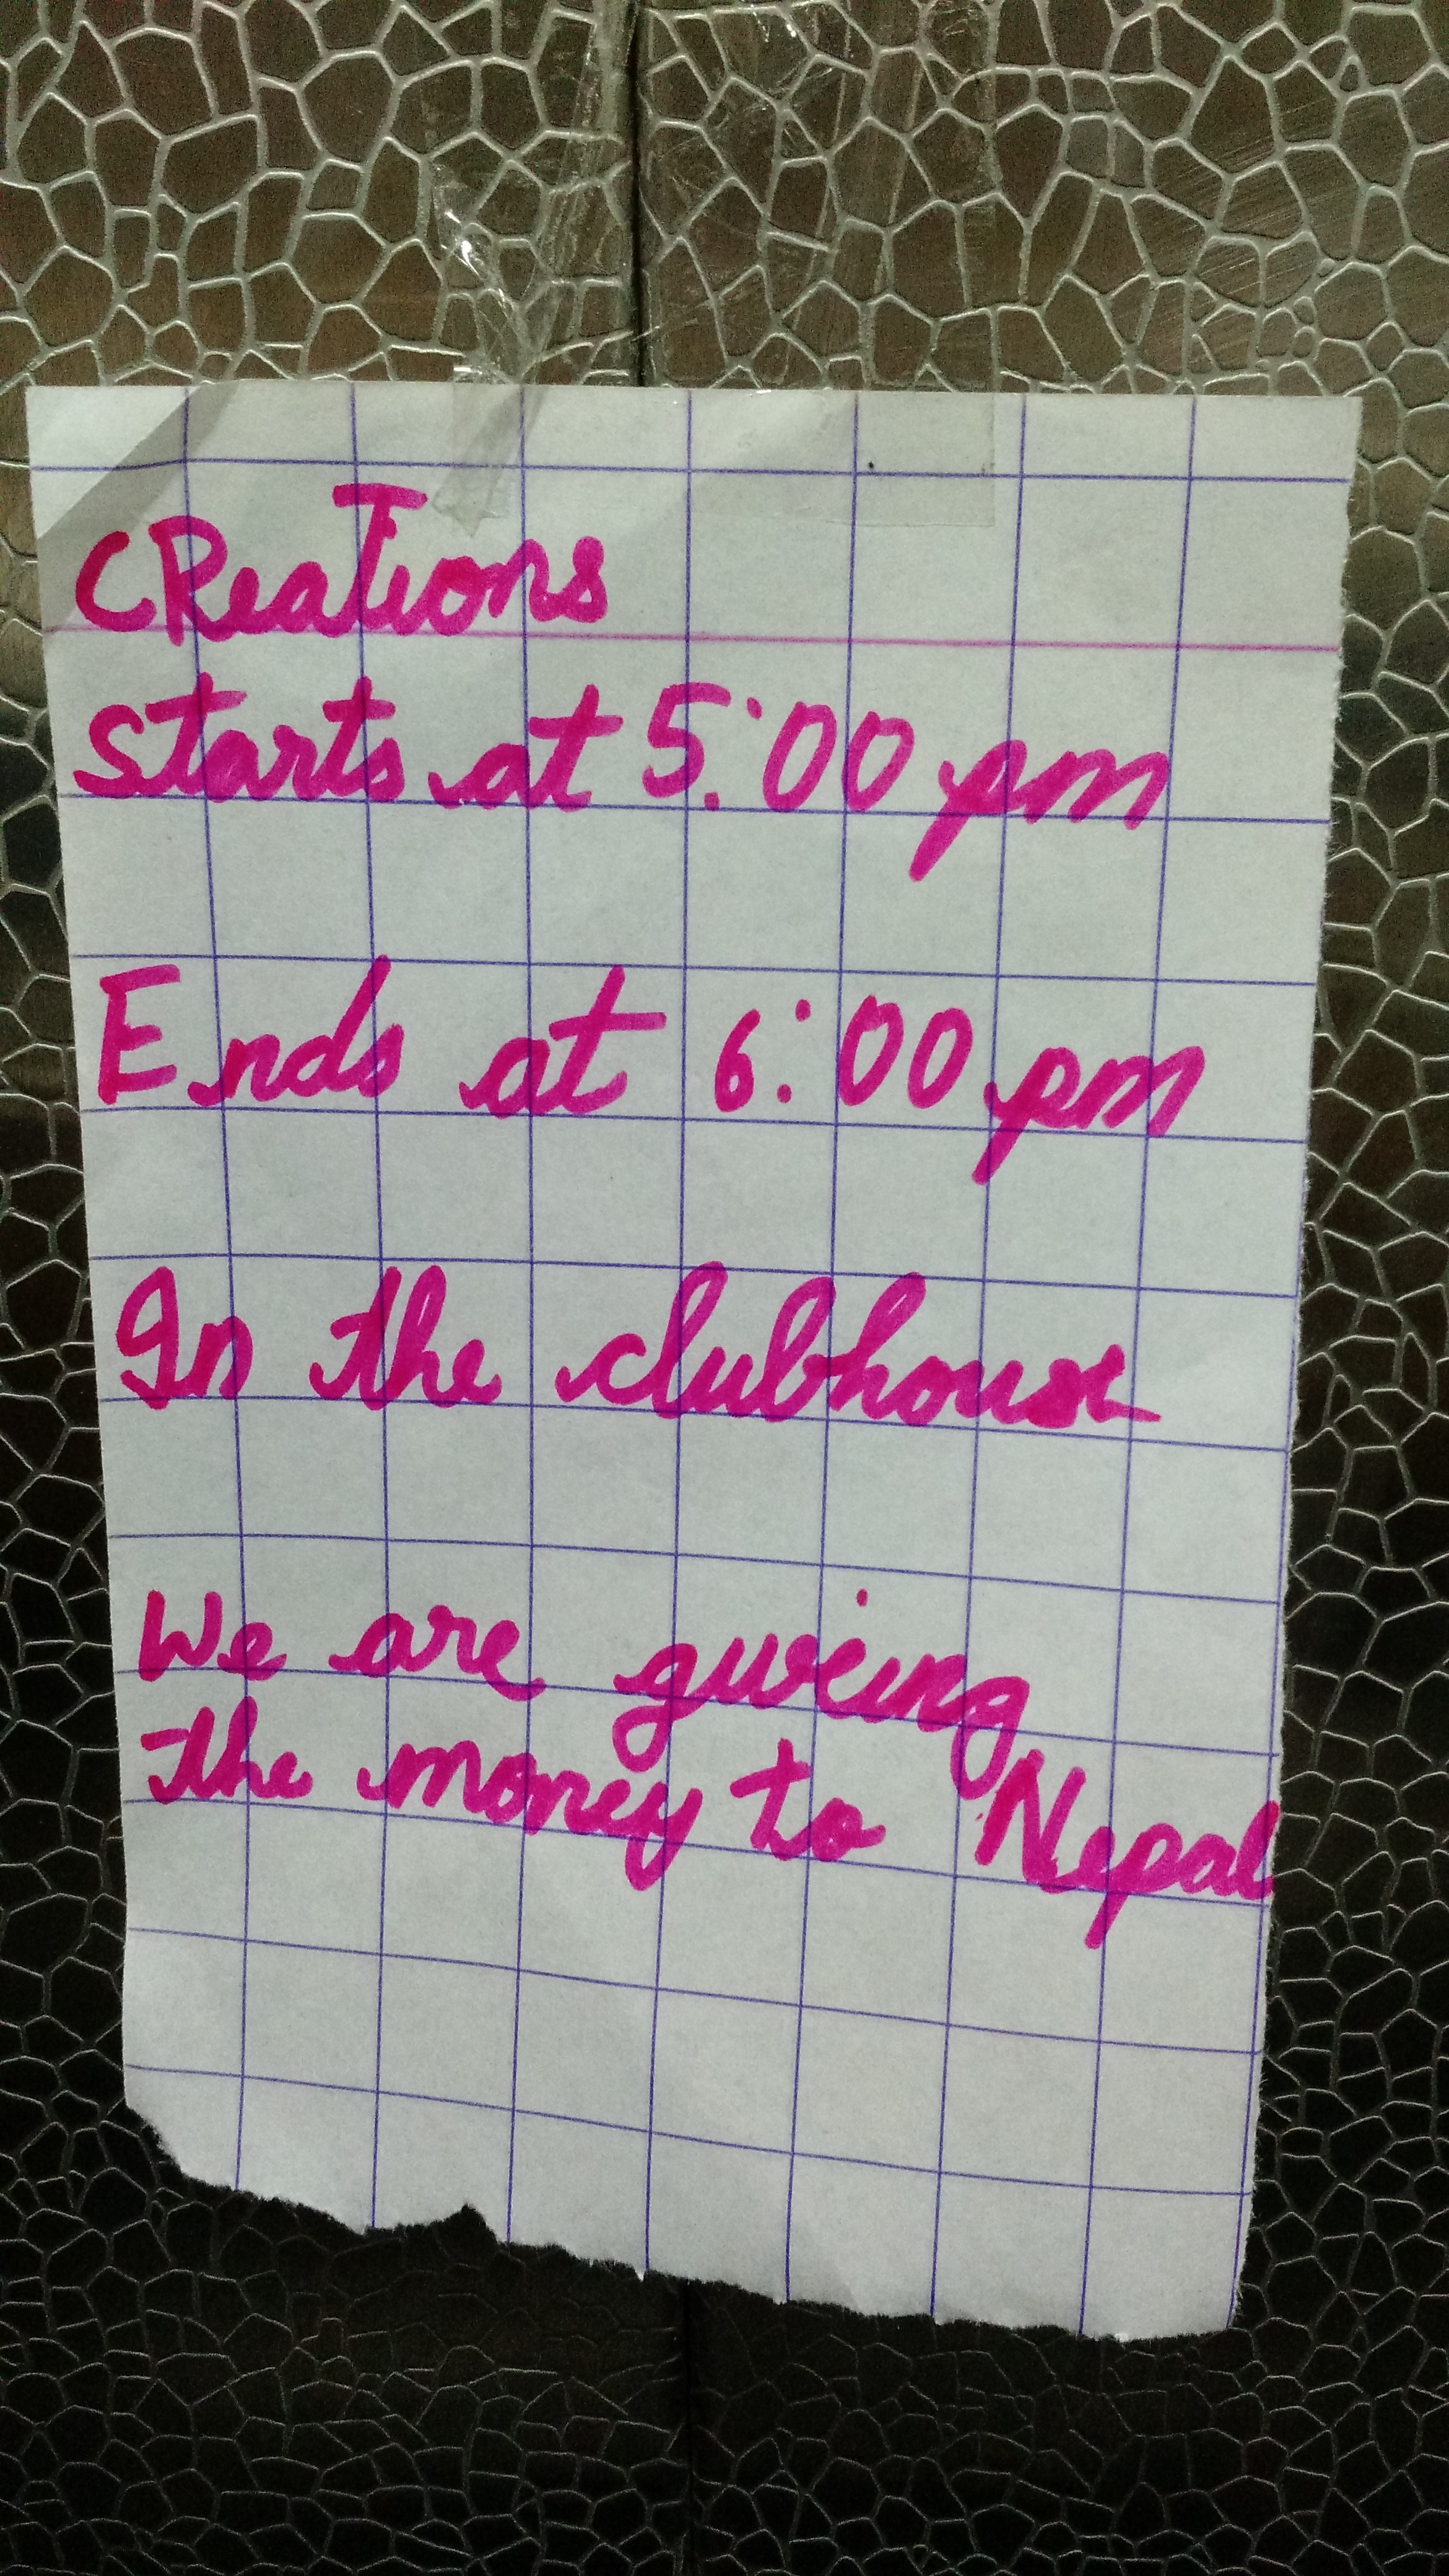 CReaTions
Starts at 5:00 pm
Ends at 6:00 pm
In the clubhouse
We are giving
the money to Nepal